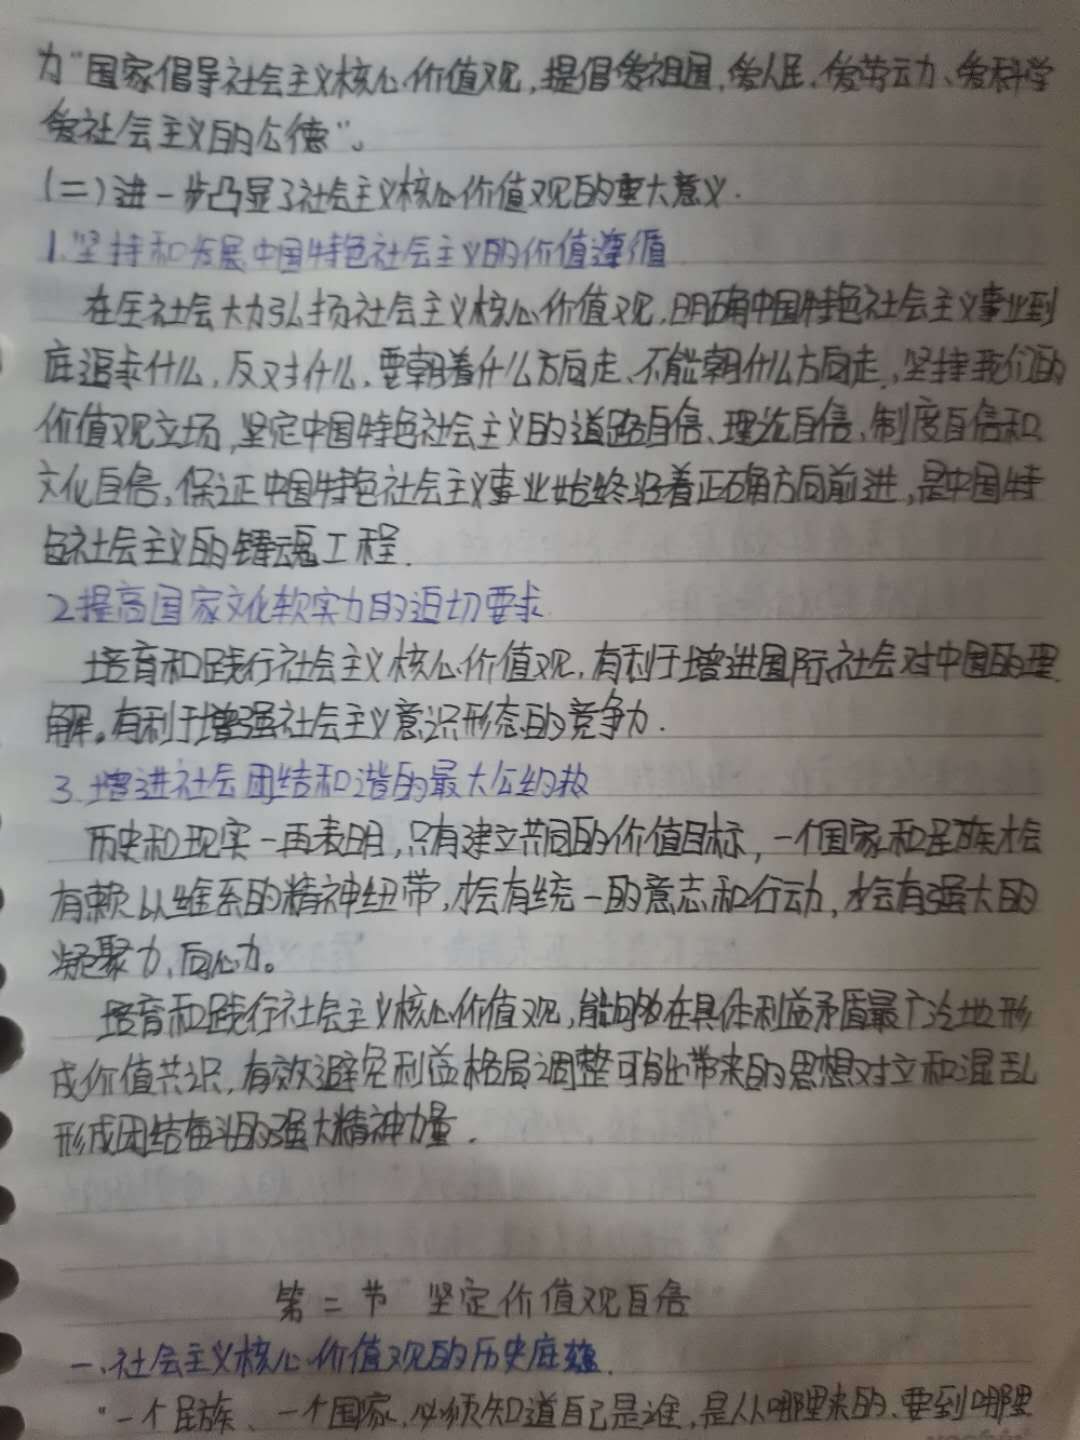 为“国家倡导社会主义核心价值观，提倡爱祖国，爱人民、爱劳动、爱科学
爱社会主义的公德”。
(二)进一步凸显了社会主义核心价值观的重大意义.
1.坚持和发展中国特色社会主义的价值遵循
在全社会大力弘扬社会主义核心价值观，明确中国特色社会主义事业到
底追求什么，反对什么，要朝着什么方向走、不能朝什么方向走，坚持我们的
价值观立场，坚定中国特色社会主义的道路自信、理论自信、制度自信和
文化自信，保证中国特色社会主义事业始终沿着正确方向前进，是中国特
色社会主义的铸魂工程.
2.提高国家文化软实力的迫切要求
培育和践行社会主义核心价值观，有利于增进国际社会对中国的理
解。有利于增强社会主义意识形态的竞争力.
3.增进社会团结和谐的最大公约数
历史和现实一再表明，只有建立共同的价值目标，一个国家和民族才会
有赖以维系的精神纽带，才会有统一的意志和行动，才会有强大的
凝聚力、向心力。
培育和践行社会主义核心价值观，能够在具体利益矛盾最广泛地形
成价值共识，有效避免利益格局调整可能带来的思想对立和混乱
形成团结奋斗的强大精神力量.
第二节 坚定价值观自信
一、社会主义核心价值观的历史底蕴.
“一个民族、一个国家，必须知道自己是谁，是从哪里来的、要到哪里